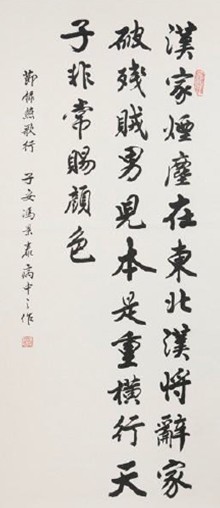 漢家煙塵在東北漢將辭家
破殘賊男兒本是重橫行天
子非常賜顏色
節錄燕歌行 子安馮景泰病中之作